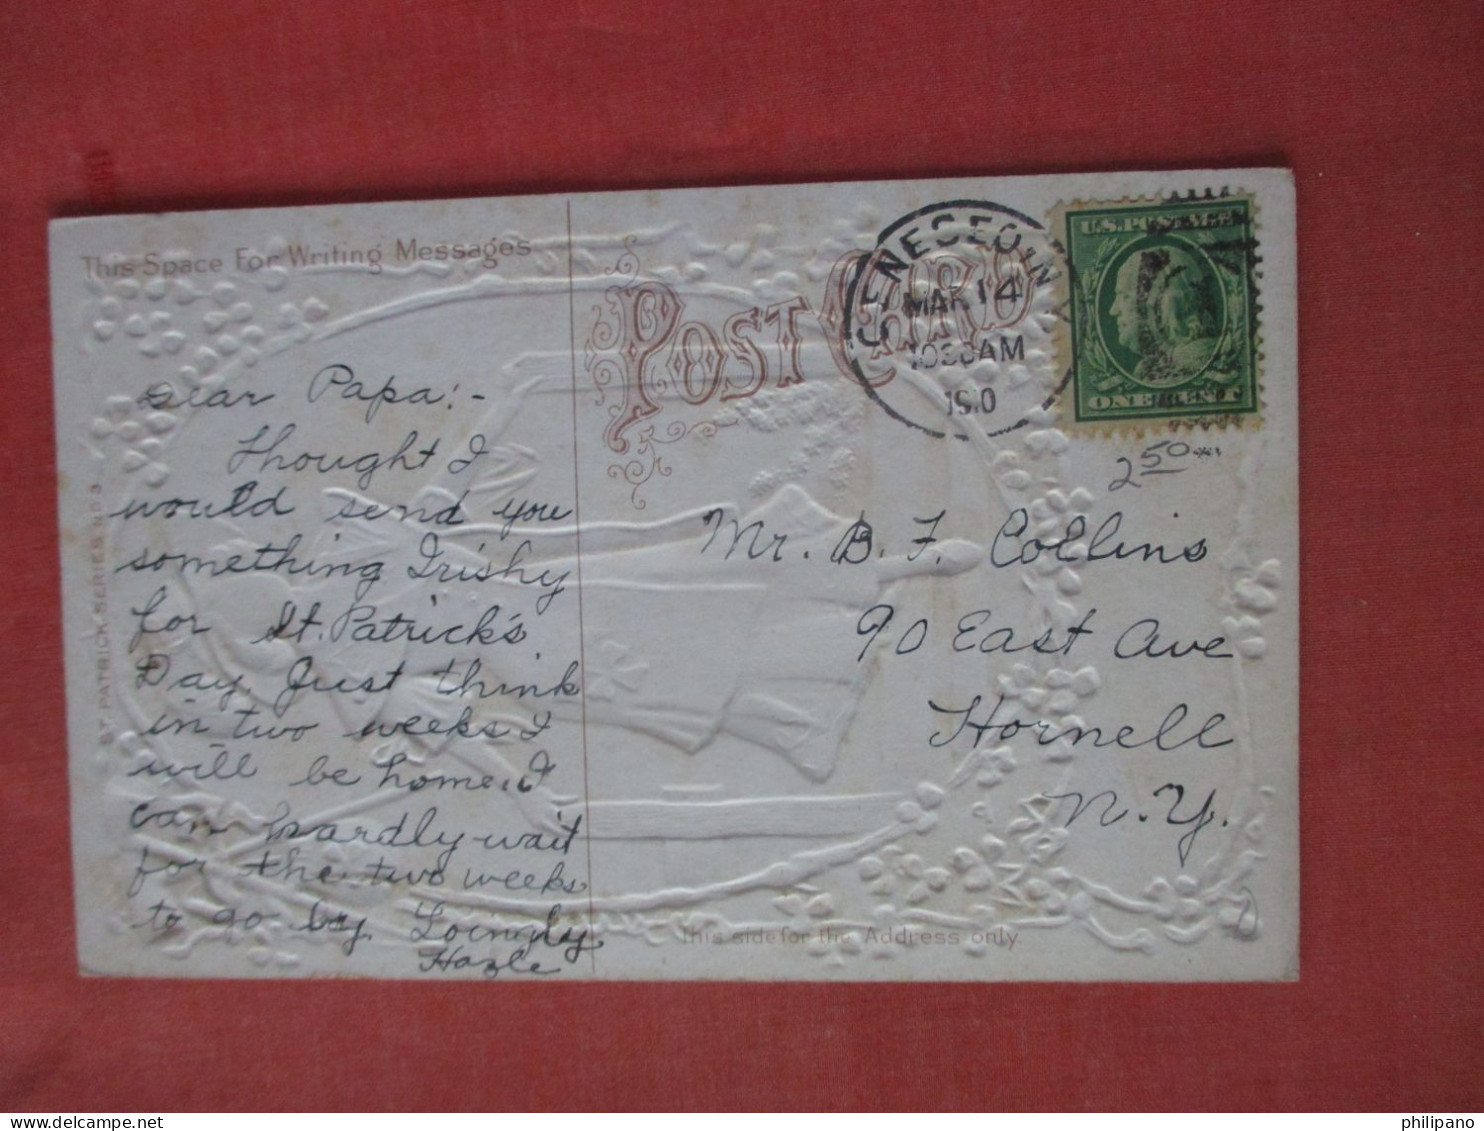 This Space For Writing Messages
POST CARD
GENESEO, N.Y.
MAR 14
1030AM
1910
U.S. POSTAGE
ONE CENT
2 50
Dear Papa:-
Thought I
would send you
something Irishy
for St. Patrick's
Day. Just think
in two weeks I
will be home. I
can hardly wait
for the two weeks
to go by. Lovingly
Hazle
Mr. B. F. Collins
90 East Ave
Hornell
N.Y.
ST. PATRICK SERIES NO 3
This side for the Address only.
philipano